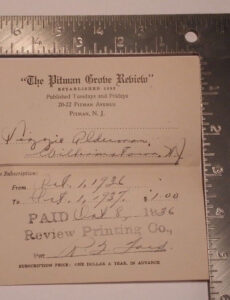 "The Pitman Grove Review"
Published Tuesdays and Fridays
20-22 Pitman Avenue
Pitman, N. J.
Alderman,
Williamstown, NJ
Subscription:
From Oct. 1, 1936
To Oct. 1, 1937. $1.00
PAID Oct 8, 1936
Review Printing Co.,
Per
SUBSCRIPTION PRICE: ONE DOLLAR A YEAR, IN ADVANCE